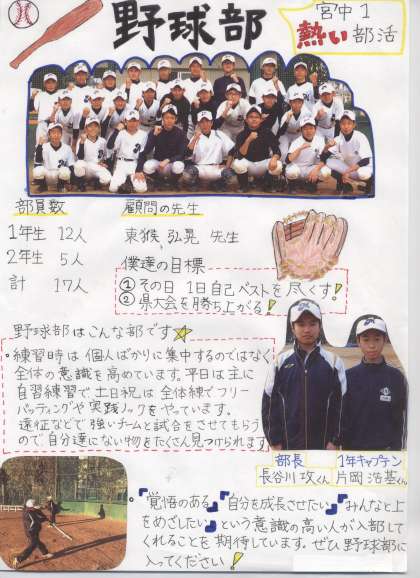 野球部
宮中1
熱い部活
部員数
1年生 12人
2年生 5人
計 17人
顧問の先生
東猴 弘晃 先生
僕達の目標
①その日1日自己ベストを尽くす!
②県大会を勝ち上がる!
野球部はこんな部です☆
・練習時は個人ばかりに集中するのではなく
全体の意識を高めています。平日は主に
自習練習で土日祝は全体練でフリー
バッティングや実践ノックをやっています。
遠征などで強いチームと試合をさせてもらう
ので自分達にない物をたくさん見つけられます
部長
長谷川 攻くん
1年キャプテン
片岡 浩基くん
「覚悟のある」「自分を成長させたい」「みんなと上
をめざしたい」という意識の高い人が入部して
くれることを期待しています。ぜひ野球部に
入ってください!